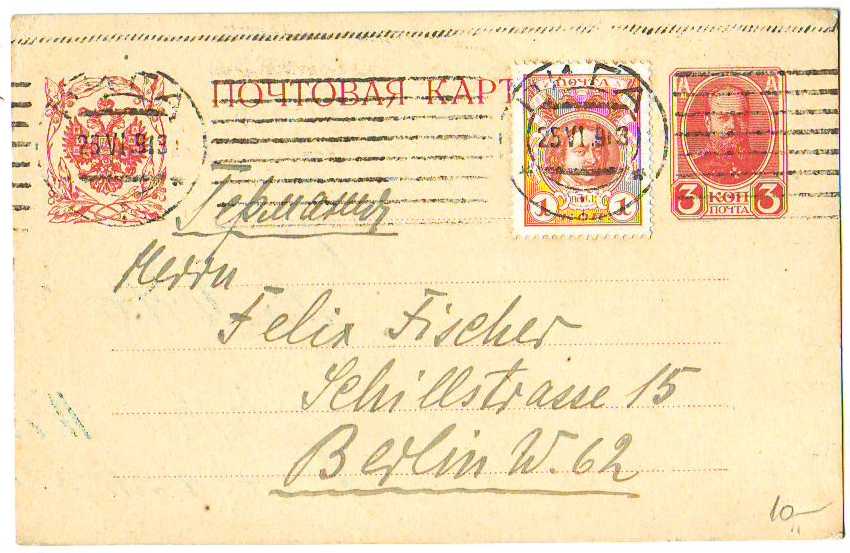 ПОЧТОВАЯ КАР
ПОЧТА
25 VI. 913
25 VI. 913
1 1
3 КОП 3
ПОЧТА
Германия
Herrn
Felix Fischer
Schillstrasse 15
Berlin W. 62
10